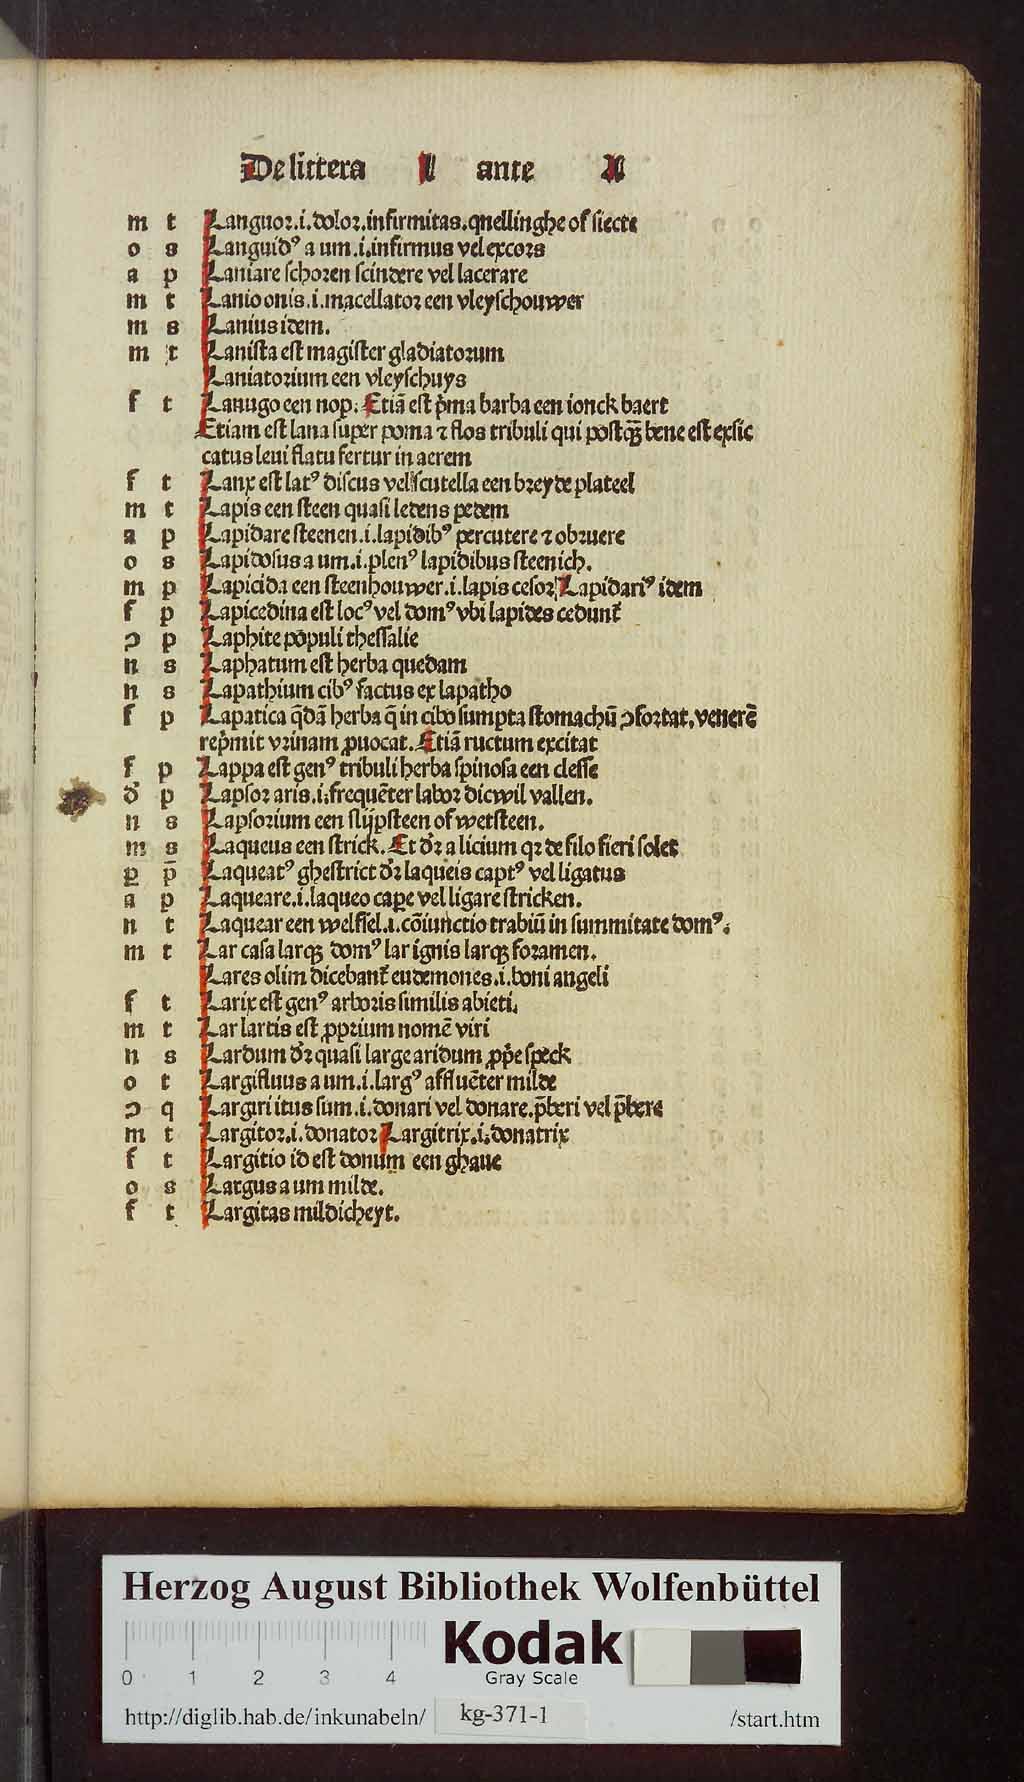 De littera L ante A
m t Languor.i.dolor.infirmitas.quellinghe of siecte
o s Languidꝰ a um.i.infirmus vel excors
a p Laniare schoren scindere vel lacerare
m t Lanio onis.i.macellator een vleyschouwer
m s Lanius idem.
m t Lanista est magister gladiatorum
Laniatorium een vleyschuys
f t Lanugo een nop. Etiā est p̓ma barba een ionck baert
Etiam est lana super poma ⁊ flos tribuli qui postqȝ̄ bene est exsic
catus leui flatu fertur in aerem
f t Lanx est latꝰ discus vel scutella een breyde plateel
m t Lapis een steen quasi ledens pedem
a p Lapidare steenen.i.lapidibꝰ percutere ⁊ obruere
o s Lapidosus a um.i.plenꝰ lapidibus steenich.
m p Lapicida een steenhouwer.i.lapis cesor Lapidariꝰ idem
f p Lapicedina est locꝰ vel domꝰ vbi lapides cedunt̉
ↄ p Laphite populi thessalie
n s Laphatum est herba quedam
n s Lapathium cibꝰ factus ex lapatho
f p Lapatica q̄dā herba q̄ in cibo sumpta stomachū ↄfortat, venerē
rep̓mit vrinam ꝓuocat. Etiā ructum excitat
f p Lappa est genꝰ tribuli herba spinosa een clesse
d̓ p Lapsor aris.i.frequēter labor dicwil vallen.
n s Lapsorium een slijpsteen of wetsteen.
m s Laqueus een strick. Et d̓r a licium qr de filo fieri solet
ꝑ p̄ Laqueatꝰ ghestrict d̓r laqueis captꝰ vel ligatus
a p Laqueare.i.laqueo caꝑe vel ligare stricken.
n t Laquear een welfsel.i.cōiunctio trabiū in summitate domꝰ.
m t Lar casa larqȝ domꝰ lar ignis larqȝ foramen.
Lares olim dicebant̉ eudemones.i.boni angeli
f t Larix est genꝰ arboris similis abieti.
m t Lar lartis est ꝓprium nomē viri
n s Lardum d̓r quasi large aridum ꝓp̓e speck
o t Largifluus a um.i.largꝰ affluēter milde
ↄ q Largiri itus sum.i.donari vel donare.p̄beri vel p̄bere
m t Largitor.i.donator Largitrix.i.donatrix
f t Largitio id est donum een ghaue
o s Largus a um milde.
f t Largitas mildicheyt.
Herzog August Bibliothek Wolfenbüttel
0 1 2 3 4
Kodak
Gray Scale
http://diglib.hab.de/inkunabeln/ kg-371-1 /start.htm